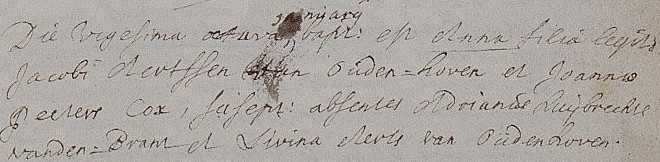 january
Die vigesima octava bapt: est Anna filia legit:
Jacobi Aertssen van Oúden=hoven et Joannæ
Peeters Cox, suscept: absentes Adrianús Huijbrechts
vanden=Brant et Livina Aerts van Oúdenhoven.